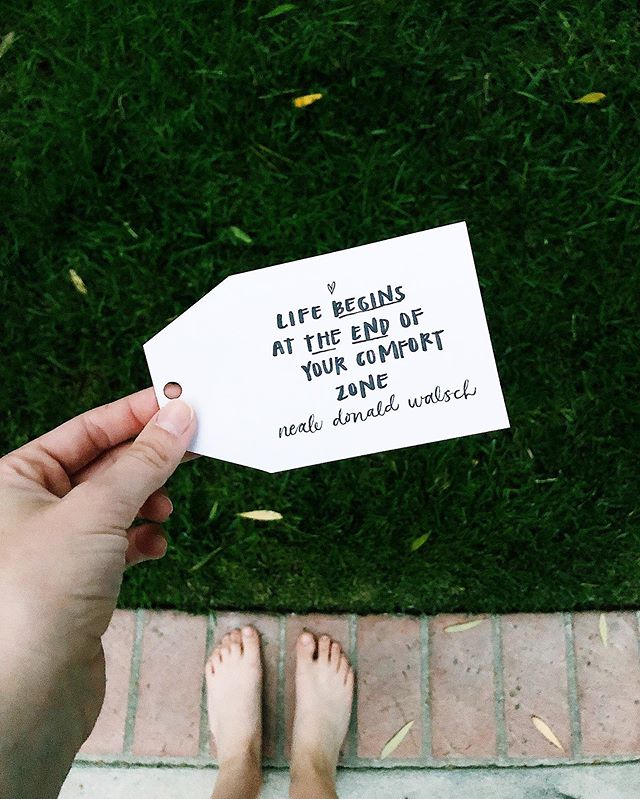 LIFE BEGINS
AT THE END OF
YOUR COMFORT
ZONE
neale donald walsch